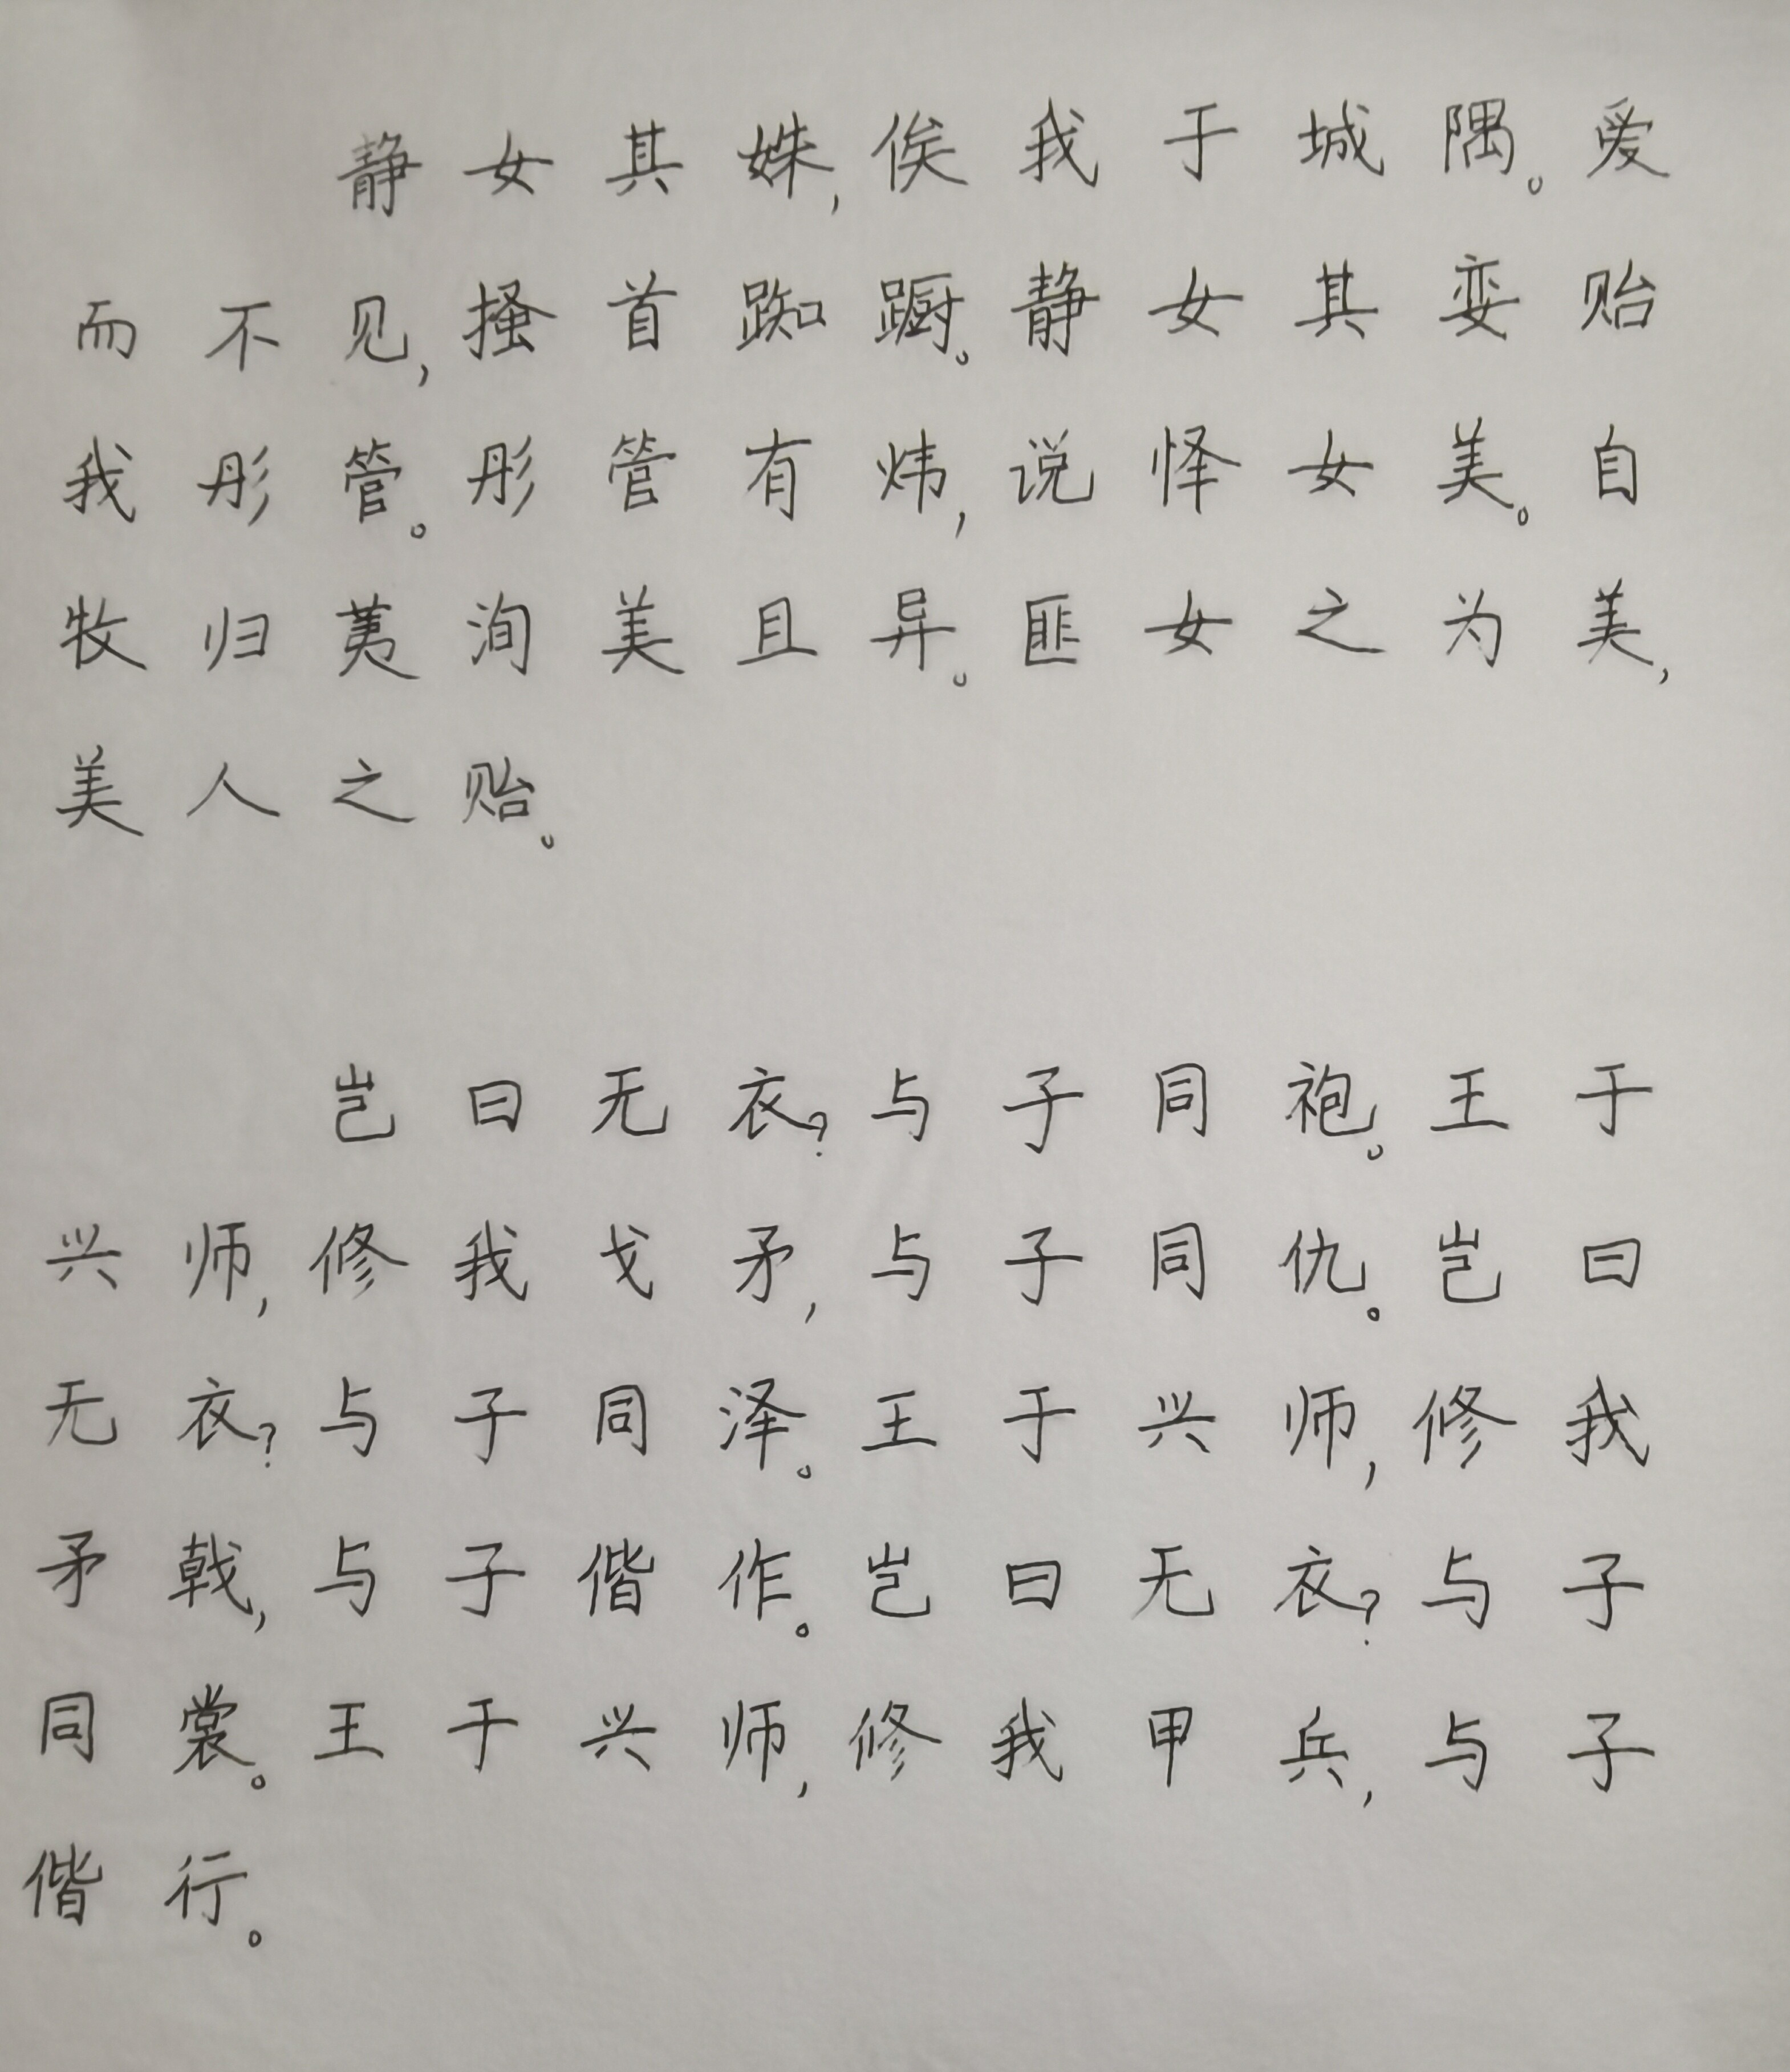 静女其姝,俟我于城隅。爱
而不见,搔首踟蹰。静女其娈贻
我彤管。彤管有炜,说怿女美。自
牧归荑洵美且异。匪女之为美,
美人之贻。
岂曰无衣?与子同袍。王于
兴师,修我戈矛,与子同仇。岂曰
无衣?与子同泽。王于兴师,修我
矛戟,与子偕作。岂曰无衣?与子
同裳。王于兴师,修我甲兵,与子
偕行。